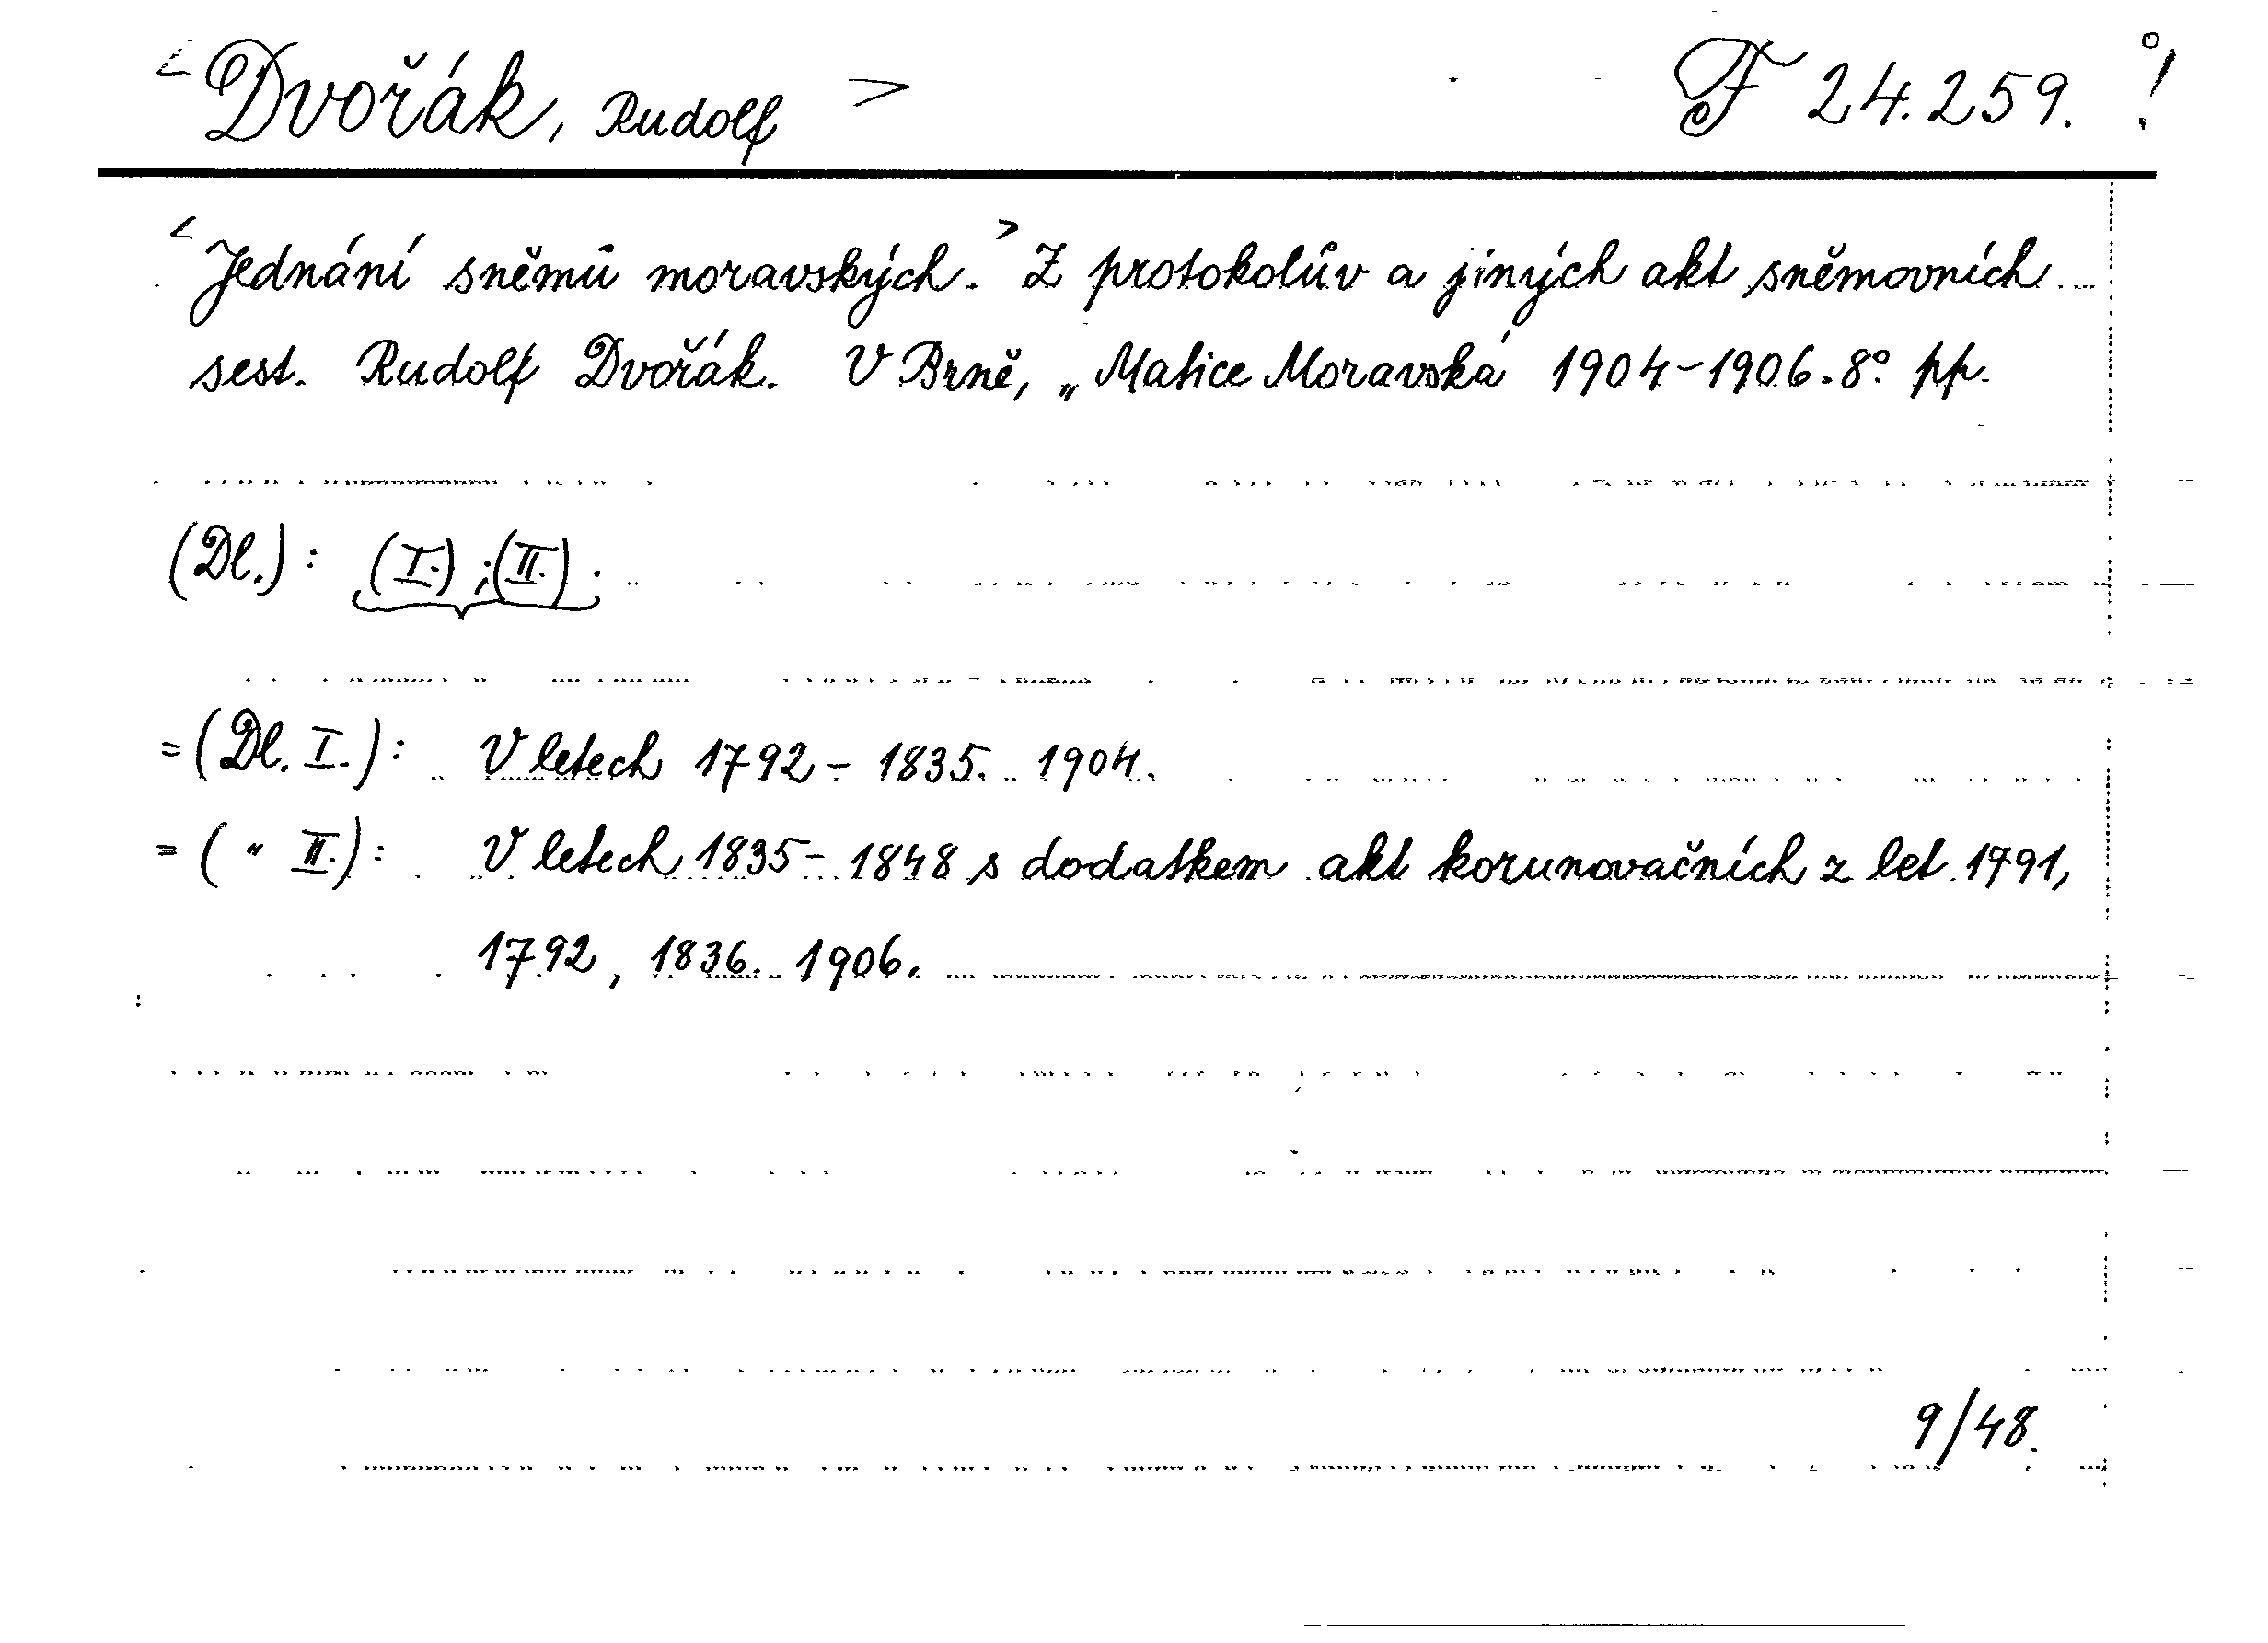 <Dvořák, Rudolf> F 24.259. !
<Jednání sněmů moravských.> Z protokolův a jiných akt sněmovních
sest. Rudolf Dvořák. V Brně, „Matice Moravská 1904-1906. 8° pp.
(Dl.): (I.) ; (II.) .
= (Dl. I.): V letech 1792 - 1835. 1904.
= ( " II.): V letech 1835 - 1848 s dodatkem akt korunovačních z let 1791,
1792, 1836. 1906.
9/48.